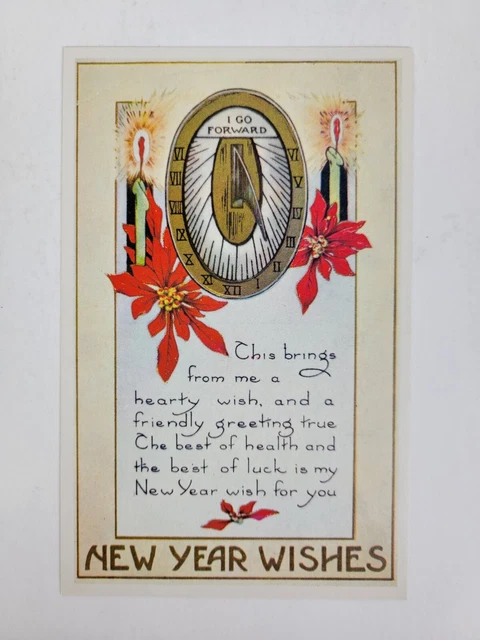 I GO
FORWARD
VI
VII
VIII
IX
X
XI
XII
I
II
III
IV
V
VI
This brings
from me a
hearty wish, and a
friendly greeting true
The best of health and
the best of luck is my
New Year wish for you
NEW YEAR WISHES